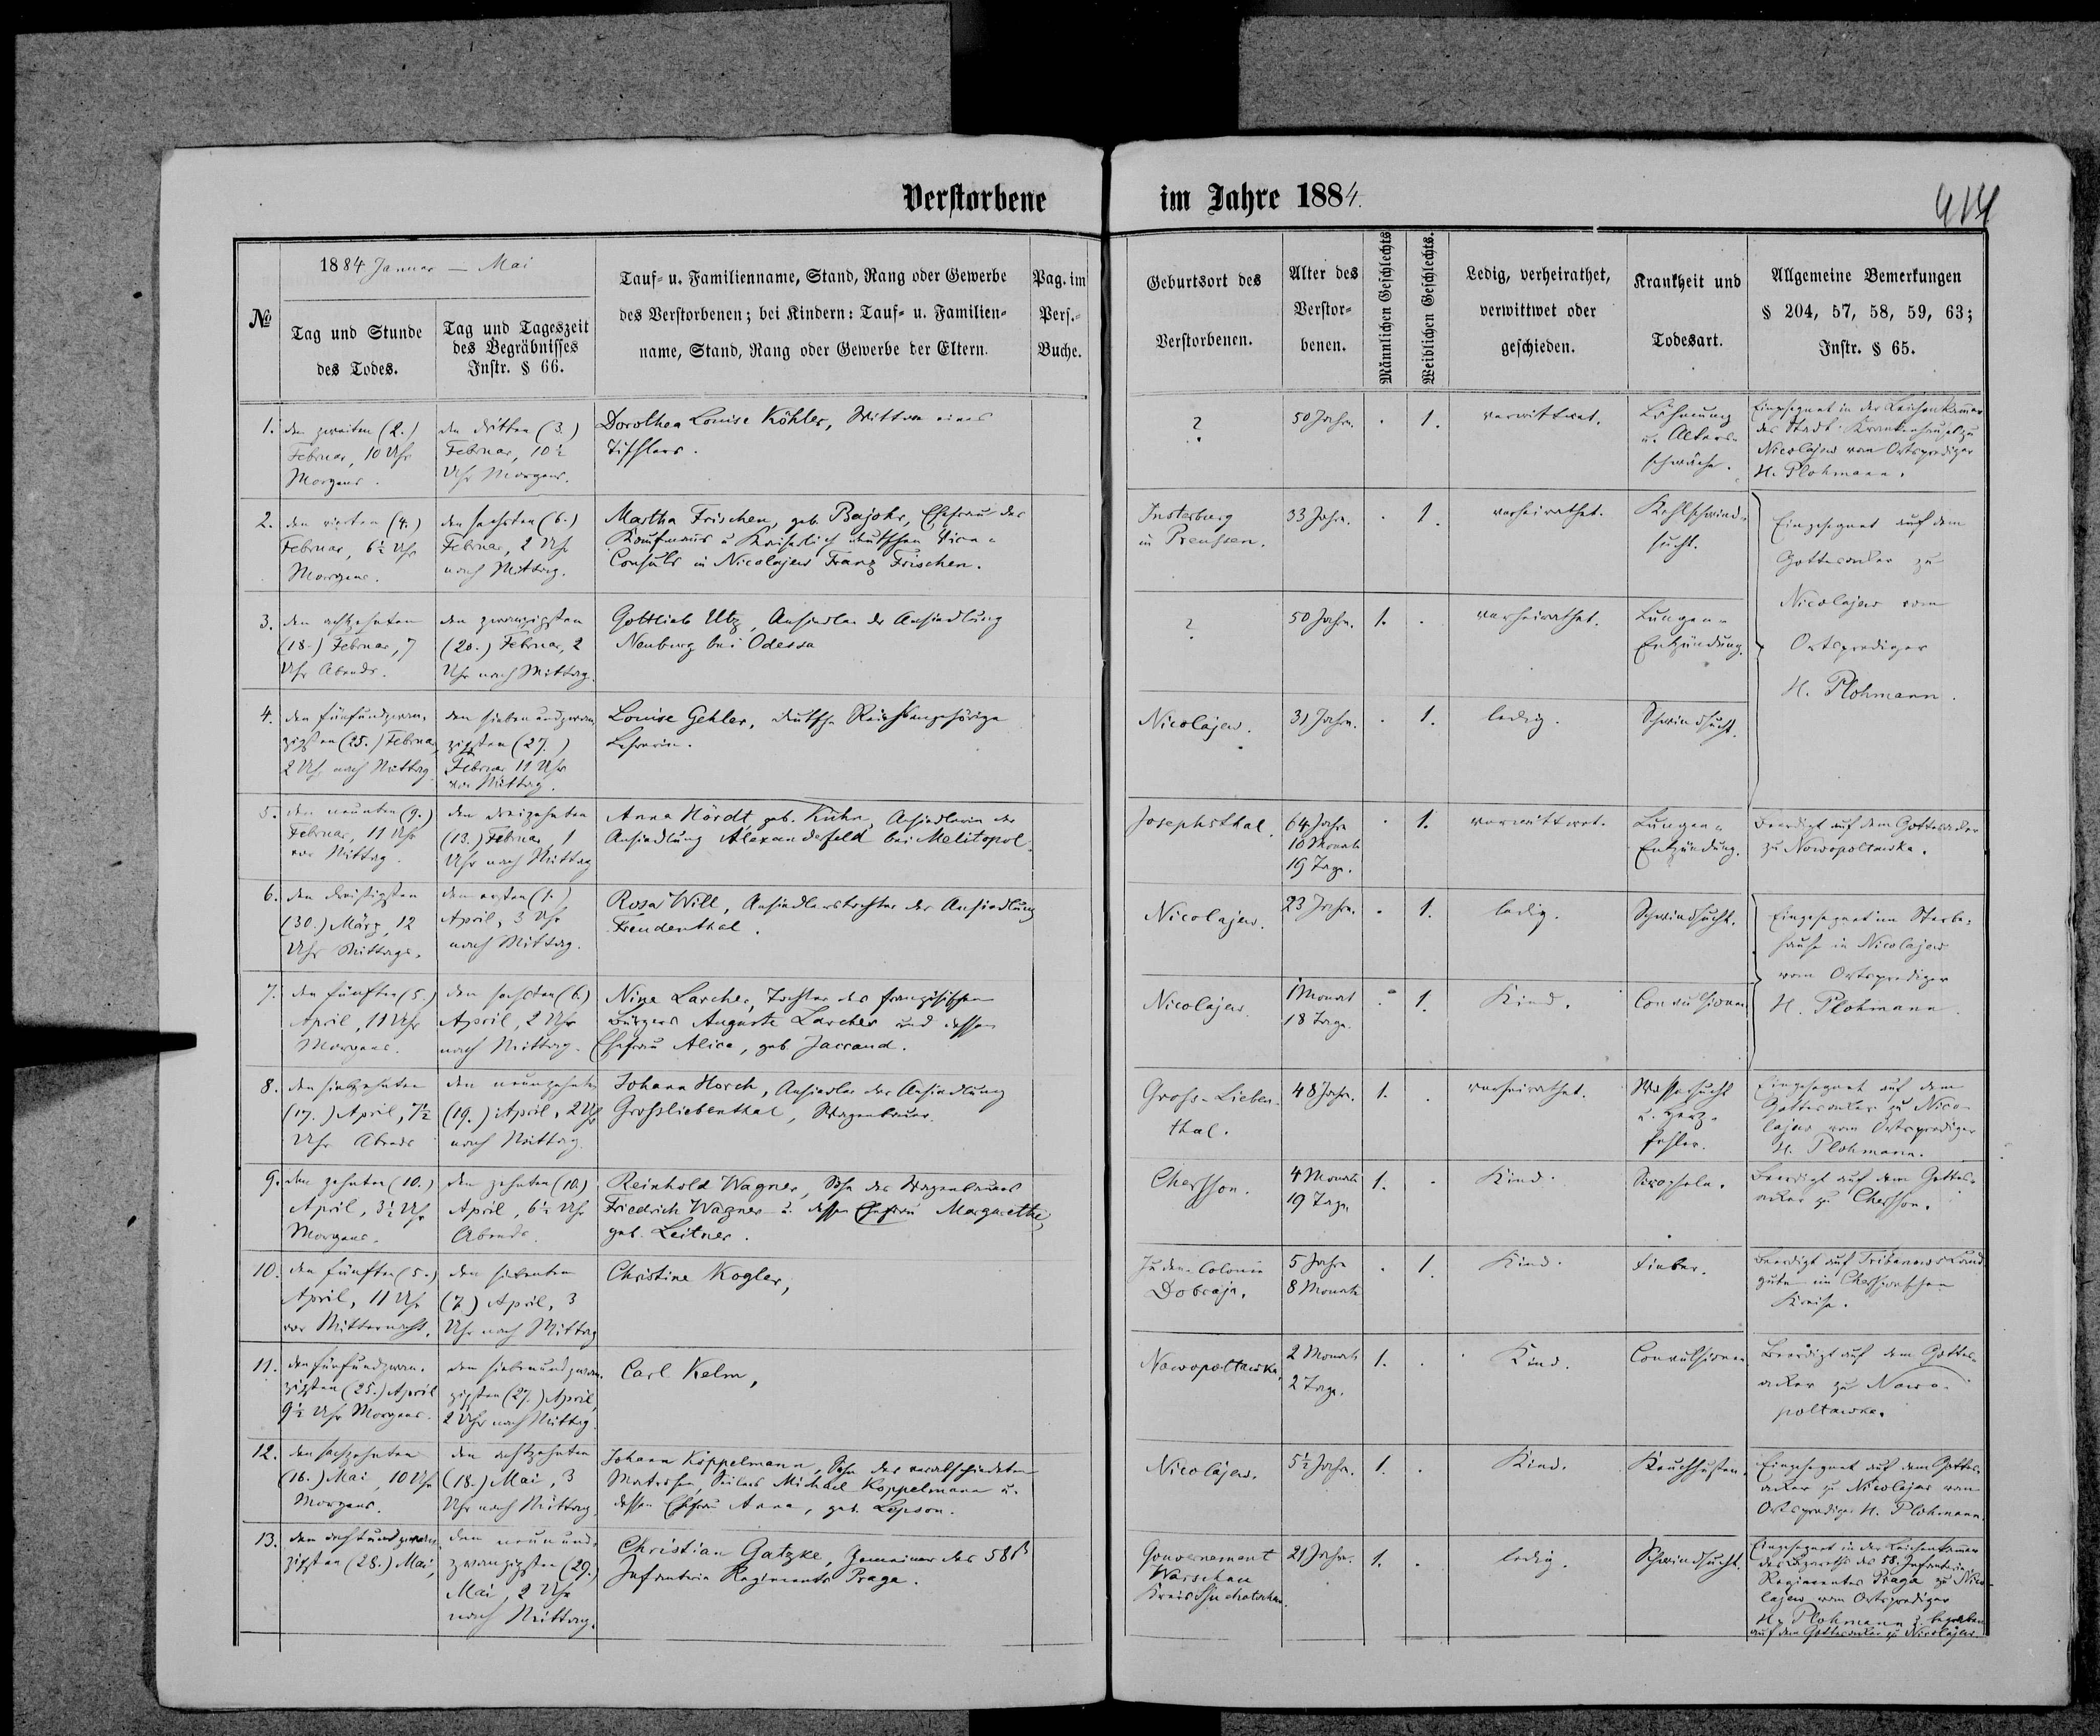 Verstorbene im Jahre 1884.
414
№
1884 Januar — Mai
Tag und Stunde
des Todes.
Tag und Tageszeit
des Begräbnisses
Instr. § 66.
Tauf- u. Familienname, Stand, Rang oder Gewerbe
des Verstorbenen; bei Kindern: Tauf- u. Familien-
name, Stand, Rang oder Gewerbe der Eltern.
Pag. im
Pers.-
Buche.
Geburtsort des
Verstorbenen.
Alter des
Verstor-
benen.
Männlichen Geschlechts
Weiblichen Geschlechts.
Ledig, verheirathet,
verwittwet oder
geschieden.
Krankheit und
Todesart.
Allgemeine Bemerkungen
§ 204, 57, 58, 59, 63;
Instr. § 65.
1.
den zweiten (2.)
Februar, 10 Uhr
Morgens.
den dritten (3.)
Februar, 10½
Uhr Morgens.
Dorothea Louise Köhler, Wittwe eines
Tischlers.
?
50 Jahre.
1.
verwittwet.
Lähmung
u. Alters-
schwäche.
Eingesegnet in der Leichenkammer
des Stadt-Krankenhauses zu
Nicolajew vom Ortsprediger
H. Plohmann.
2.
den vierten (4.)
Februar, 6½ Uhr
Morgens.
den sechsten (6.)
Februar, 2 Uhr
nach Mittag.
Martha Frischen, geb. Bajohr, Ehefrau des
Kaufmanns u Kaiserlich deutschen Vice-
Consuls in Nicolajew Franz Frischen.
Insterburg
in Preussen.
33 Jahre.
1.
verheirathet.
Kehlschwind-
sucht.
Eingesegnet auf dem
Gottesacker zu
Nicolajew vom
Ortsprediger
H. Plohmann.
3.
den achtzehnten
(18.) Februar, 7
Uhr Abends.
den zwanzigsten
(20.) Februar, 2
Uhr nach Mittag.
Gottlieb Utz, Ansiedler der Ansiedlung
Neuburg bei Odessa
?
50 Jahre.
1.
verheirathet.
Lungen-
Entzündung.
4.
den fünfundzwan-
zigsten (25.) Februar
2 Uhr nach Mittag
den siebenundzwan-
zigsten (27.)
Februar 11 Uhr
vor Mittag.
Louise Gehler, deutsche Reichsangehörige
Lehrerin.
Nicolajew.
31 Jahre.
1.
ledig.
Schwindsucht.
5.
den neunten (9.)
Februar, 11 Uhr
vor Mittag.
den dreizehnten
(13.) Februar, 1
Uhr nach Mittag
Anna Hördt, geb. Kuhn, Ansiedlerin der
Ansiedlung Alexanderfeld bei Melitopol.
Josephsthal.
64 Jahre
10 Monate
19 Tage.
1.
verwittwet.
Lungen-
Entzündung.
Beerdigt auf dem Gottesacker
zu Nowopoltawka.
6.
den dreißigsten
(30.) März, 12
Uhr Mittags.
den ersten (1.)
April, 3 Uhr
nach Mittag.
Rosa Will, Ansiedlerstochter der Ansiedlung
Freudenthal.
Nicolajew.
23 Jahre.
1.
ledig.
Schwindsucht.
Eingesegnet im Sterbe-
hause in Nicolajew
vom Ortsprediger
H. Plohmann.
7.
den fünften (5.)
April, 11 Uhr
Morgens.
den sechsten (6.)
April, 2 Uhr
nach Mittag.
Nina Larcher, Tochter des französischen
Bürgers Auguste Larcher und dessen
Ehefrau Alice, geb. Jaccand.
Nicolajew.
1 Monat
18 Tage.
1.
Kind.
Convulsionen
8.
den siebzehnten
(17.) April, 7½
Uhr Abends
den neunzehnten
(19.) April, 2 Uhr
nach Mittag.
Johann Horch, Ansiedler der Ansiedlung
Grossliebenthal, Wagenbauer.
Gross-Lieben-
thal.
48 Jahre.
1.
verheirathet.
Wassersucht
u. Herz-
fehler.
Eingesegnet auf dem
Gottesacker zu Nico-
lajew vom Ortsprediger
H. Plohmann.
9.
den zehnten (10.)
April, 3½ Uhr
Morgens.
den zehnten (10.)
April, 6½ Uhr
Abends.
Reinhold Wagner, Sohn des Wagenbauers
Friedrich Wagner u. dessen Ehefrau Margarethe,
geb. Leitner.
Chersson.
4 Monate
19 Tage
1.
Kind.
Skropheln.
Beerdigt auf dem Gottes-
acker zu Chersson.
10.
den fünften (5.)
April, 11 Uhr
vor Mitternacht.
den siebenten
(7.) April, 3
Uhr nach Mittag
Christine Kogler,
Juden-Colonie
Dobraja.
5 Jahre
8 Monate
1.
Kind.
Fieber.
Beerdigt auf Land-
gute im Chersonschen
Kreise.
11.
den fünfundzwan-
zigsten (25.) April
9½ Uhr Morgens.
den siebenundzwan-
zigsten (27.) April,
2 Uhr nach Mittag.
Carl Kelm,
Nowopoltawka.
2 Monate
2 Tage.
1.
Kind.
Convulsionen.
Beerdigt auf dem Gottes-
acker zu Nowo-
poltawka.
12.
den sechzehnten
(16.) Mai, 10 Uhr
Morgens.
den achtzehnten
(18.) Mai, 3
Uhr nach Mittag.
Johann Köppelmann, Sohn des verabschiedeten
Matrosen, Seilers Michael Koppelmann u.
dessen Ehefrau Anna, geb. Lepson.
Nicolajew.
5½ Jahre.
1.
Kind.
Keuchhusten.
Eingesegnet auf dem Gottes-
acker zu Nicolajew vom
Ortsprediger H. Plohmann.
13.
den achtundzwan-
zigsten (28.) Mai,
den neunund-
zwanzigsten (29.)
Mai, 2 Uhr
nach Mittag.
Christian Gatzke, Gemeiner des 58ten
Infanterie Regiments Praga.
Gouvernement
Warschau
Kreis
21 Jahre.
1.
ledig.
Schwindsucht.
Eingesegnet in der Leichenkammer
des Lazareths des 58. Infanterie
Regimentes Praga zu Nico-
lajew vom Ortsprediger
H. Plohmann u. begraben
auf dem Gottesacker zu Nicolajew.